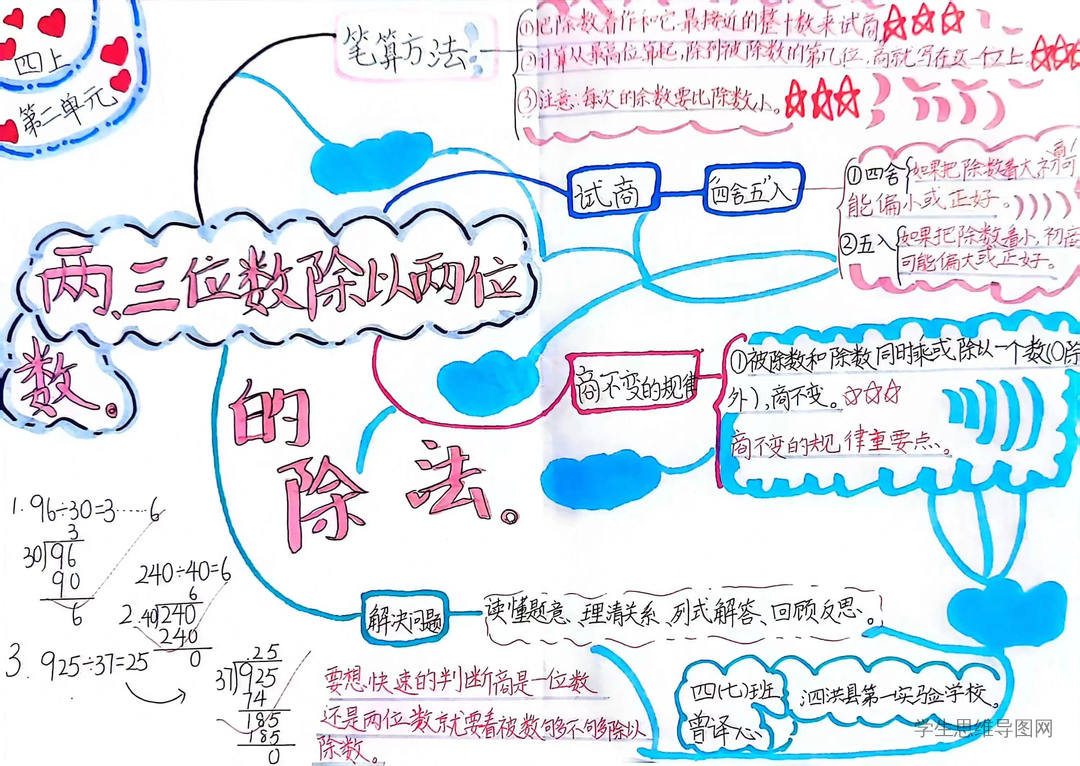 四上
第二单元
笔算方法!
①把除数看作和它最接近的整十数来试商
②计算从最高位算起,除到被除数的第几位,商就写在这一个上。
③注意:每次的余数要比除数小。
试商
"四舍五"入
①四舍 如果把除数看大,初商可
能偏小或正好。
②五入 如果把除数看小,初商
可能偏大或正好。
两、三位数除以两位
数。
的
除法。
商不变的规律
①被除数和除数同时乘或除以一个数(0除
外),商不变。
商不变的规律重要点。
1. 96÷30=3……6
3
30)96
90
6
240÷40=6
6
2. 40)240
240
0
3. 925÷37=25
.25
37)925
74
185
185
0
解决问题
读懂题意、理清关系、列式解答、回顾反思。
要想快速的判断商是一位数
还是两位数就要看被数够不够除以
除数。
四(七)班
曾译心
泗洪县第一实验学校。
学生思维导图网